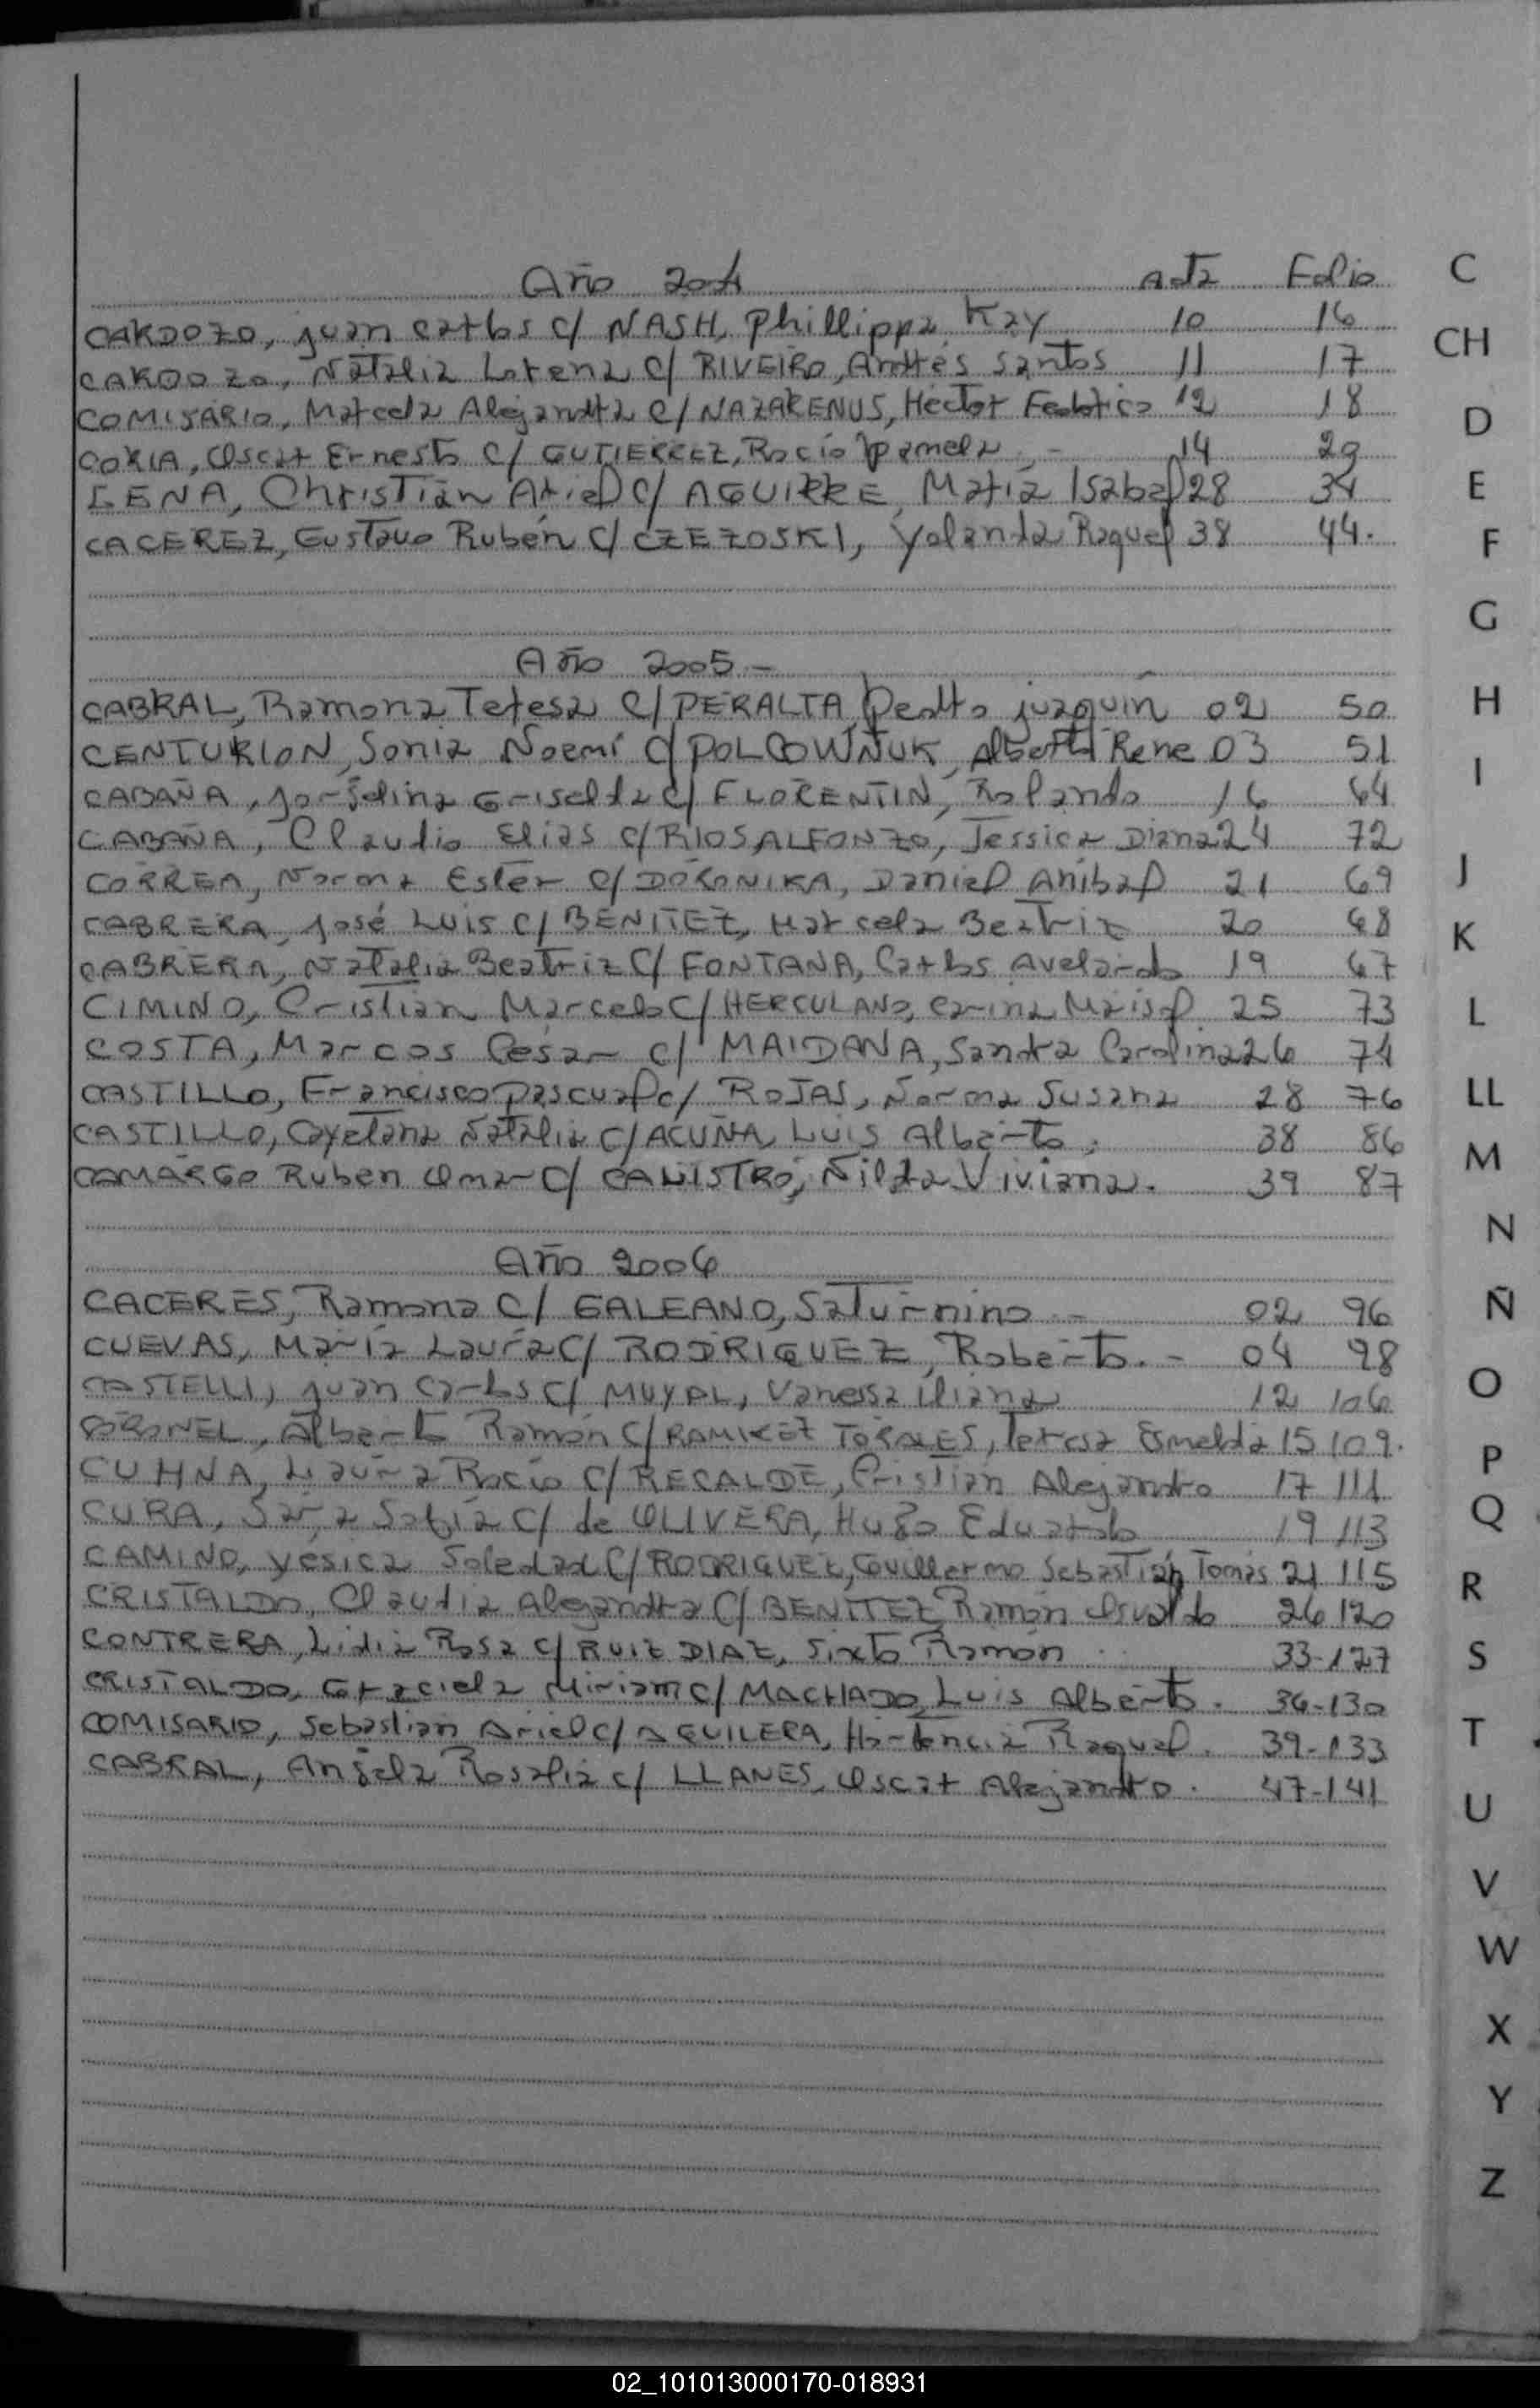 Año 2004 Acta Folio
CARDOZO, Juan Carlos c/ NASH, Phillippa Kay 10 16
CARDOZO, Natalia Lorena c/ RIVEIRO, Andrés Santos 11 17
COMISARIO, Marcela Alejandra c/ NAZARENUS, Héctor Federico 12 18
CORIA, Oscar Ernesto c/ GUTIERREZ, Rocío Pamela.- 14 20
Christian Ariel c/ AGUIRRE, María Isabel 28 34
CACEREZ, Gustavo Rubén c/ CZEZOSKI, Yolanda Raquel 38 44.
Año 2005.-
CABRAL, Ramona Teresa c/ PERALTA, Pedro Juaquín 02 50
CENTURION, Sonia Noemí c/ POLCOWÑUK, Alberto Rene 03 51
CABAÑA, Jorjelina Griselda c/ FLORENTIN, Rolando 16 64
CABAÑA, Claudio Elias c/ RIOS ALFONZO, Jessica Diana 24 72
CORREA, Norma Ester c/ DORONIKA, Daniel Anibal 21 69
CABRERA, José Luis c/ BENITEZ, Marcela Beatriz 20 68
CABRERA, Natalia Beatriz c/ FONTANA, Carlos Avelardo 19 67
CIMINO, Cristian Marcelo c/ HERCULANO, Carina Maisel 25 73
COSTA, Marcos Cesar c/ MAIDANA, Sandra Carolina 26 74
CASTILLO, Francisco Pascual c/ ROJAS, Norma Susana 28 76
CASTILLO, Cayetana Natalia c/ ACUÑA, Luis Alberto. 38 86
CAMARGO Ruben Omar c/ CALISTRO, Nilda Viviana. 39 87
Año 2006
CACERES, Ramona c/ GALEANO, Saturnino.- 02 96
CUEVAS, María Laura c/ RODRIGUEZ, Roberto.- 04 98
CASTELLI, Juan Carlos c/ MUYAL, Vanessa Iliana 12 106
CORONEL, Alberto Ramón c/ RAMIREZ TORALES, Teresa Esmelda 15 109.
CUHNA, Laura Rocío c/ RECALDE, Cristian Alejandro 17 111
CURA, Sara Sofía c/ de OLIVERA, Hugo Eduardo 19 113
CAMINO, Yésica Soledad c/ RODRIGUEZ, Guillermo Sebastián Tomás 21 115
CRISTALDO, Claudia Alejandra c/ BENITEZ, Ramón Osvaldo 26 120
CONTRERA, Lidia Rosa c/ RUIZ DIAZ, Sixto Ramón. 33-127
CRISTALDO, Graciela Miriam c/ MACHADO, Luis Alberto. 36-130
COMISARIO, Sebastian Ariel c/ AGUILERA, Hortencia Raquel. 39-133
CABRAL, Anjela Rosalia c/ LLANES, Oscar Alejandro. 47-141
C
CH
D
E
F
G
H
I
J
K
L
LL
M
N
Ñ
O
P
Q
R
S
T
U
V
W
X
Y
Z
02_101013000170-018931